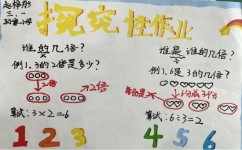 探究性作业
三.一
谁的几倍?
例1.3的2倍是多少?
2倍
算式:3×2=6
谁是谁的几倍?
例1.6是3的几倍?
算式:6÷3=2
1 2 3 4 5 6